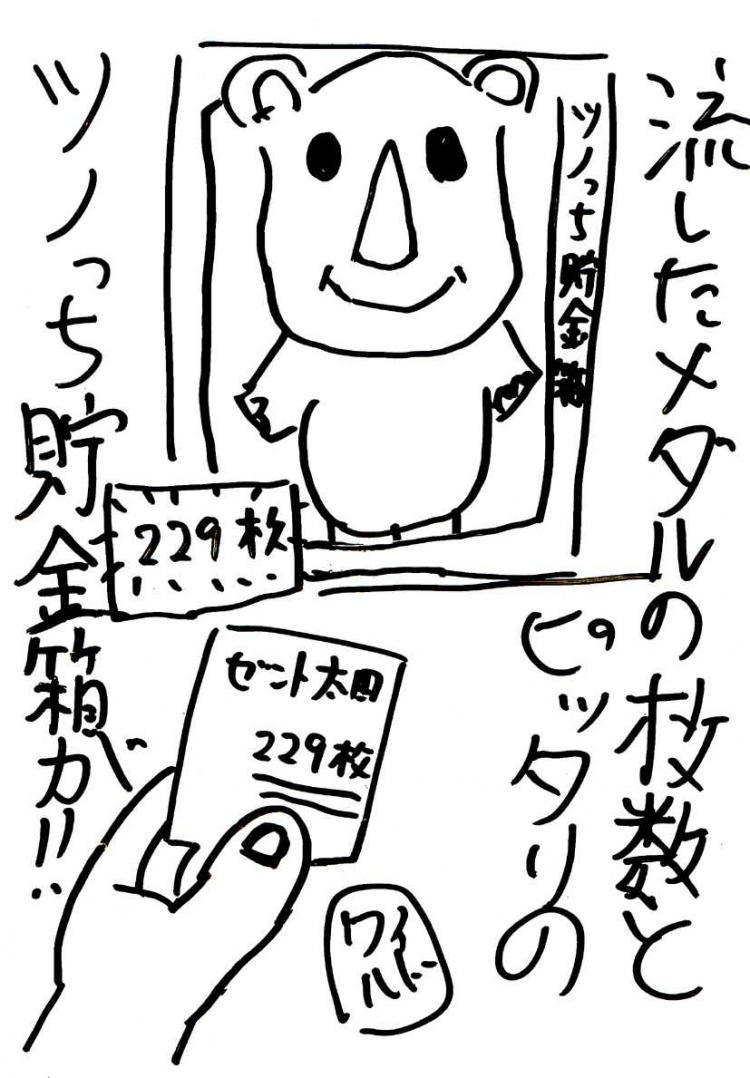 流したメダルの枚数と
ピッタリの
ツノっち貯金箱が!!
ツノっち貯金箱
229枚
ゼント太田
229枚
ワイルド